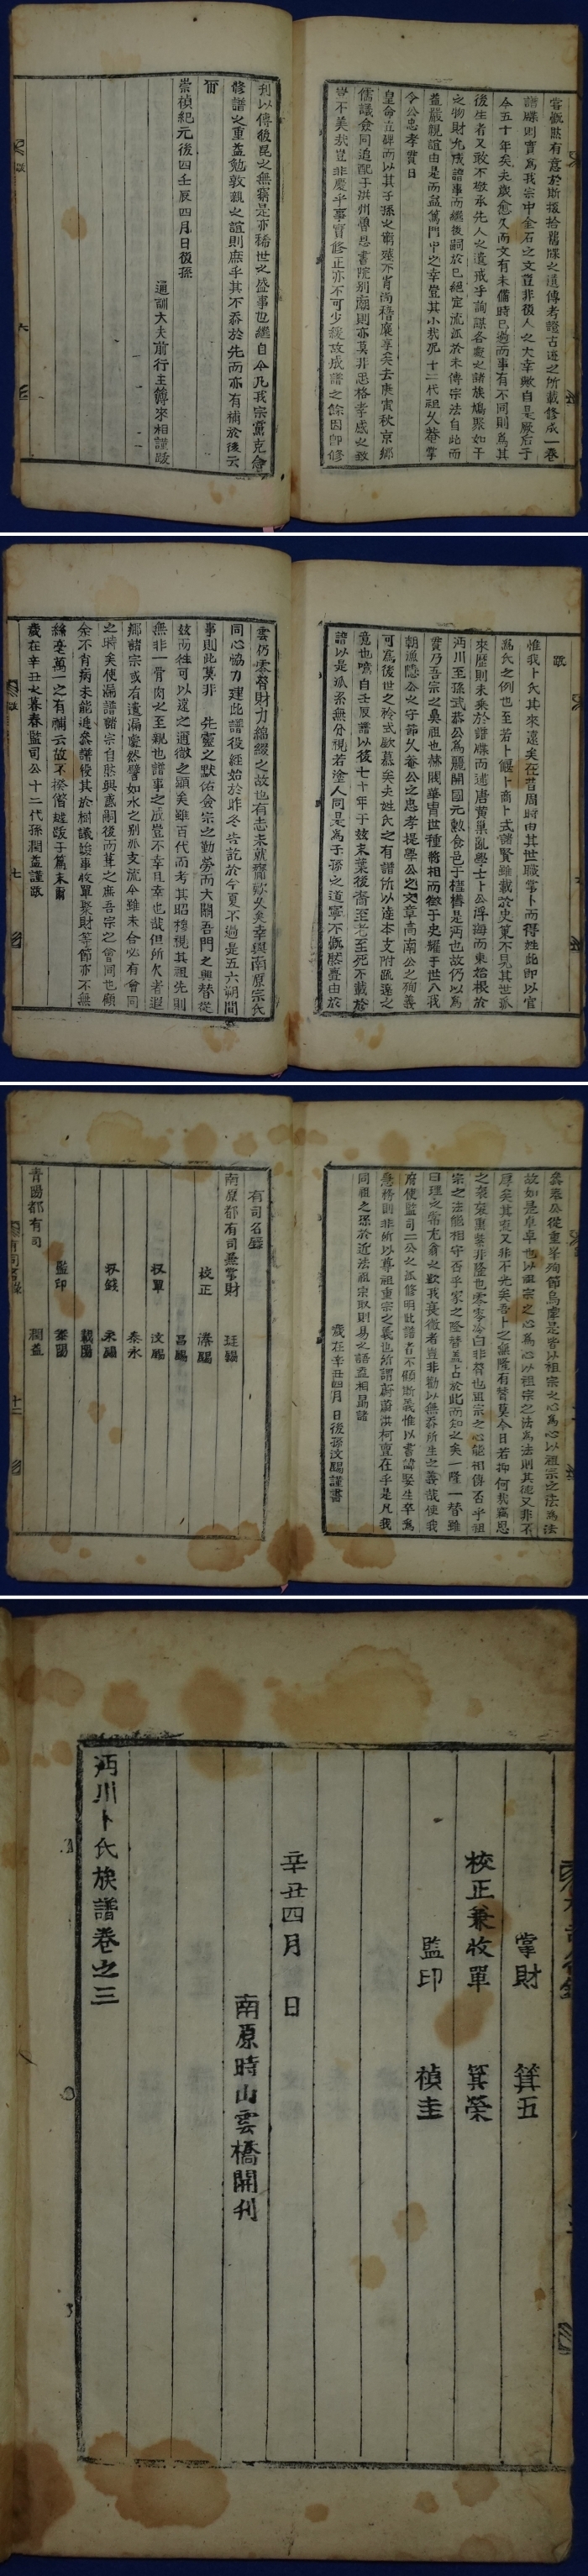 嘗慨然有意於斯掇拾舊牒之遺傳考證古迹之所載修成一卷
譜牒則實為我宗中金石之文豈非後人之大幸歟自是厥后于
今五十年矣夫歲愈久而文有未備時已過而事有不同則為其
後生者又敢不檄承先人之遺戒乎詢謀各處之諸族鳩聚如干
之物財允成譜事而繼後嗣於已絕定流派於未傳宗法自此而
益嚴親誼由是而益篤門中之幸豈其小哉况十二代祖乆菴掌
令公忠孝貫日
皇命立碑而以其子孫之
儒議僉同追配于洪州魯恩書院別廟則亦莫非思格孝感之致
豈不美哉豈非慶乎事實修正亦不可少緩故成譜之餘因卽修
刋以傳後昆之無窮是亦稀世之盛事也繼自今凡我宗黨克會
修譜之重益勉敦親之誼則庶乎其不忝於先而亦有補於後云
爾
崇禎紀元後四壬辰四月日後孫
通訓大夫前行主簿來相謹跋
跋
惟我卜氏其來遠矣在昔周時由其世職掌卜而得姓此卽以官
為氏之例也至若卜偃卜商卜式諸賢雖載於史策不見其世派
來歷則未乘於譜牒而逮唐黃巢亂學士卜公浮海而東始根於
沔川至孫武恭公為麗開國元勲食邑于槥是沔也故仍以為
貫乃吾宗之鼻祖也赫閥華胄世種將相而徵于史耀于世八我
朝漁隱公之守節乆菴公之忠孝提學公之文章高南公之殉義
可為後世之矜式歆慕矣夫姓氏之有譜所以達本支附疏遠之
意也噫自壬辰譜以後七十年于玆末葉後裔至老至死不載於
譜以是派系無分視若塗人同是為子孫之道寧不慨然臺由於
雲仍零替財力綿綴之故也有志未就齎歎乆矣幸與南原宗氏
同心協力建此譜役經始於昨冬告訖於今夏不過是五六朔間
事則此莫非 先靈之默佑僉宗之勤勞而大關吾門之興替從
玆而往可以達之通徵之顯矣雖百代而考其昭穆視其祖先則
無非一骨肉之至親也譜事之成豈不幸且幸也哉但所欠者遐
鄕諸宗或有遺漏慮然譬如水之別派支流今雖未合必有會同
之時矣使漏譜諸宗自然興感嗣後而葺之庶吾宗之會同也顧
余不肖病未能進參譜役其於樹議竣事收單聚財等節亦不無
絲毫萬一之有補云故不揆僭越跋于篇末爾
歲在辛丑之暮春監司公十二代孫潤益謹跋
眞泰公從重峯殉節烏摩是皆以祖宗之心為心以祖宗之法為法
故如是卓卓也以祖宗之心為心以祖宗之法為法則其德又非不
厚矣其東又非不光矣吾卜之彙隆有替莫今日若抑何哉竊思
之裘裘重紫非隆也零零冷白非替也祖宗之心能相傳否乎祖
宗之法能相守否乎家之隆替盖占於此而知之矣一隆一替雖
曰理之常尤翁之歎我衰微者豈非勸以無忝所生之義哉使我
府使監司二公之派修明此譜者不顧斯義惟以書諱娶生卒為
急務則非所以尊祖重宗之義也所謂蔚蕭洪柯亶在乎是凡我
同祖之孫於近法祖宗取則易之語盍相勗諸
歲在辛丑四月 日後孫汶鳴謹書
有司名錄
南原都有司兼掌財 廷鎭
校正 濟鳴
昌鳴
收單 汶鳴
泰永
収錢 來鳴
載陽
監印 泰陽
青陽都有司 潤益
十二
掌財 箕五
校正兼收單 箕榮
監印 禎圭
辛丑四月 日
南原時山雲橋開刋
沔川卜氏族譜卷之三